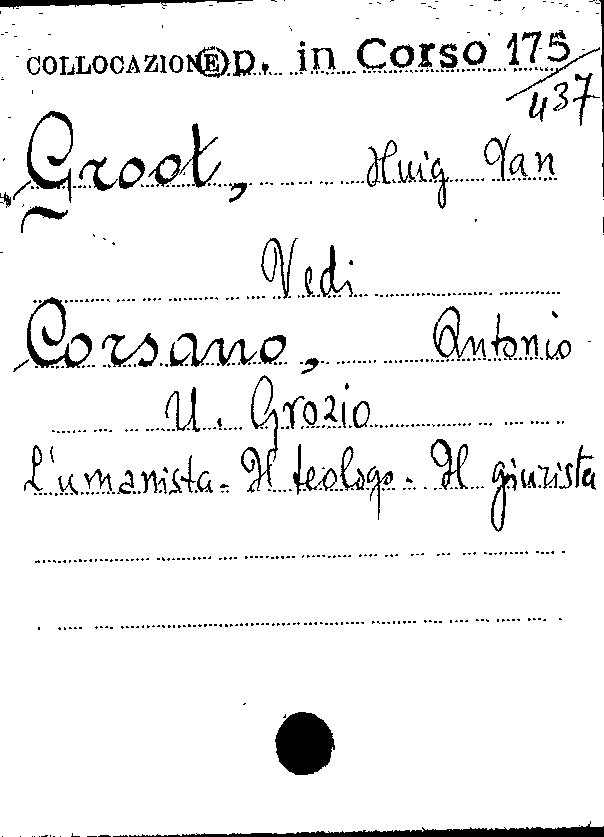 COLLOCAZIONE Op. in Corso 175
437
Groot, Huig Van
Vedi
Corsano, Antonio
U. Grozio
L'umanista. Il teologo. Il giurista